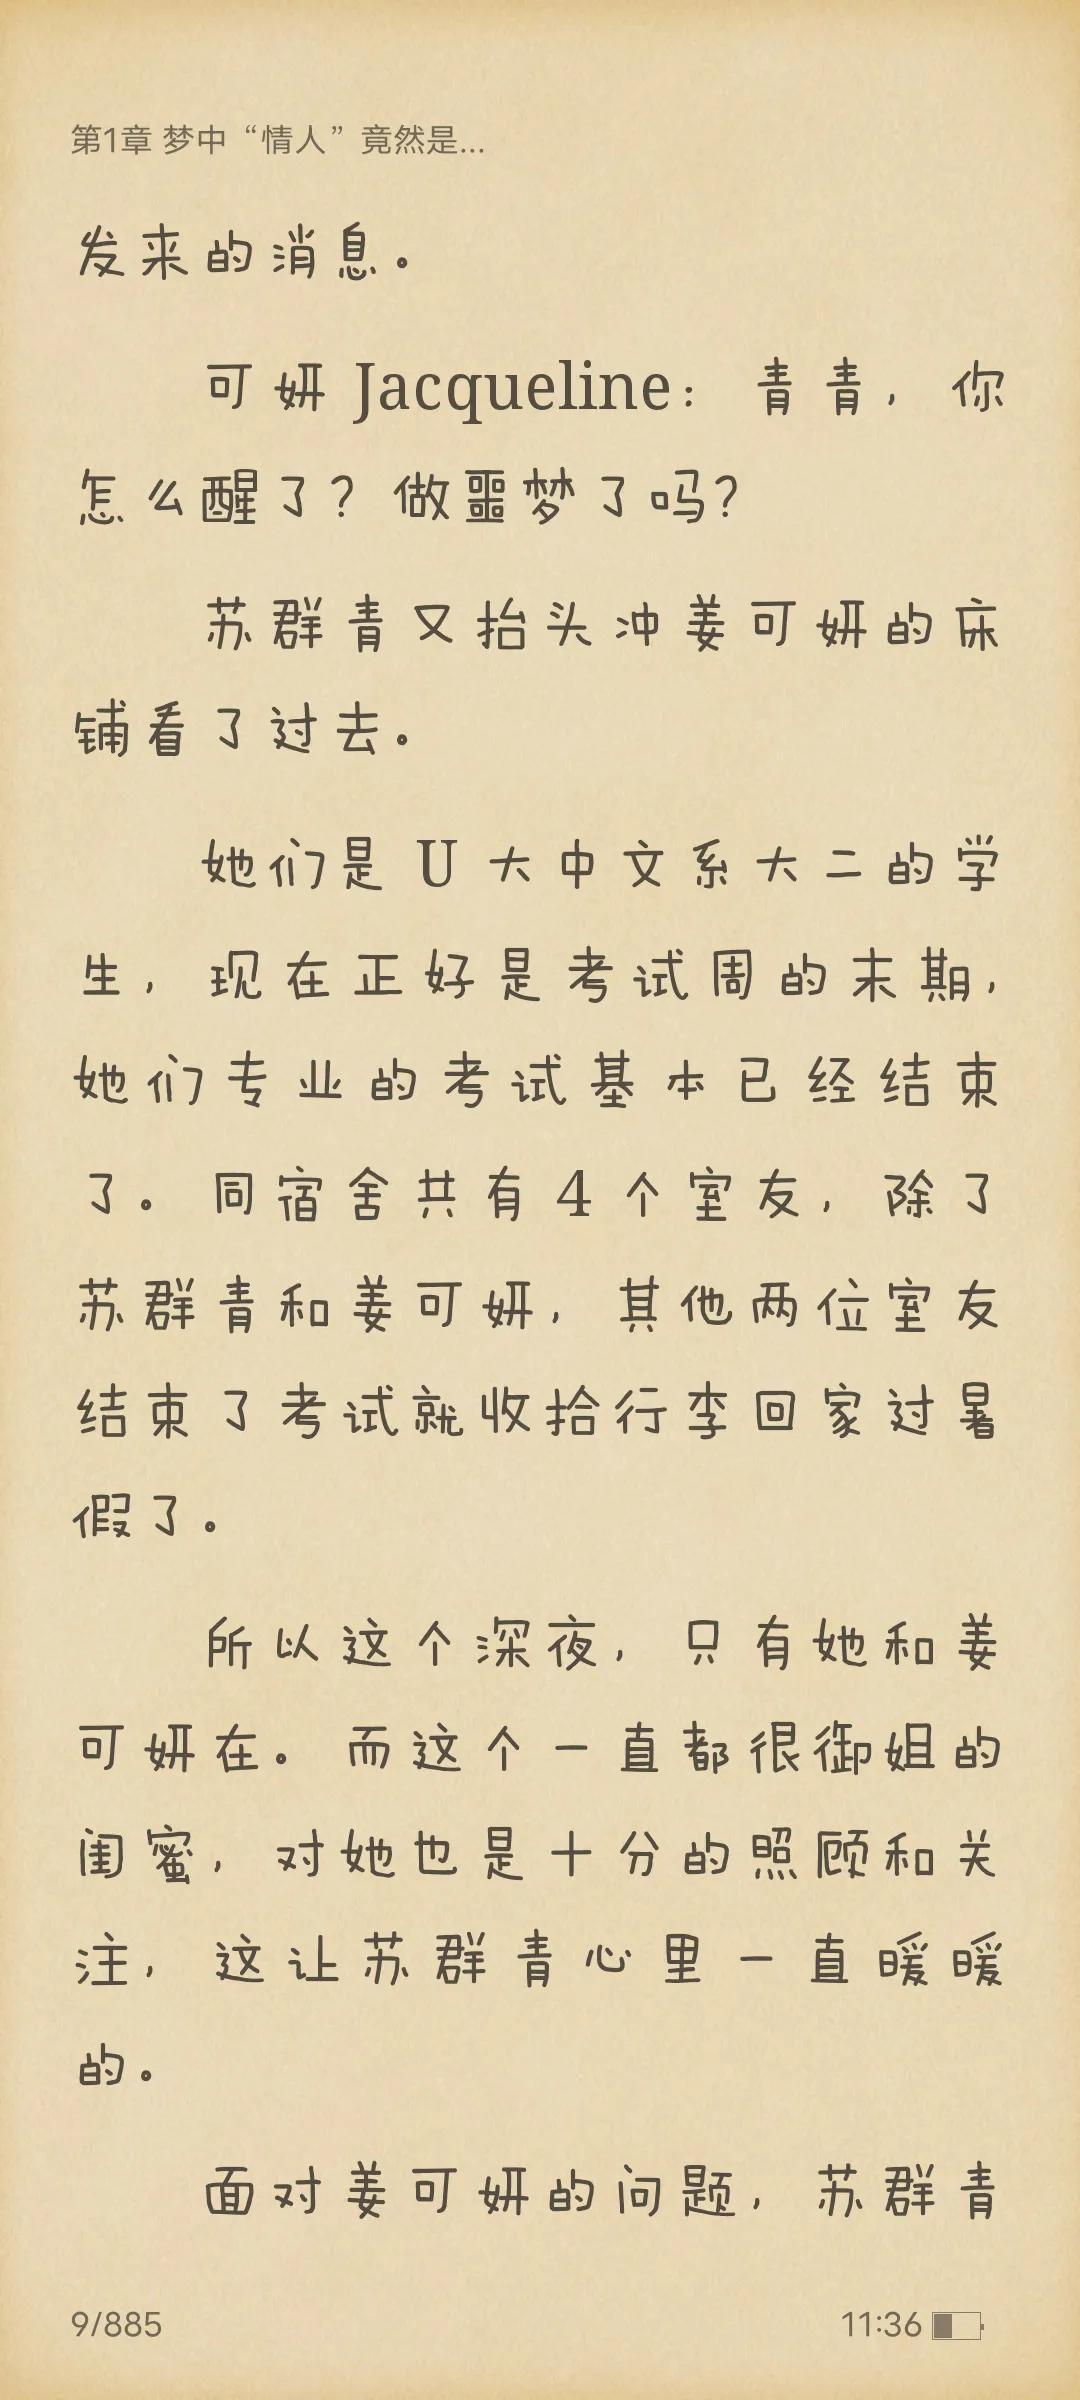 第1章 梦中“情人”竟然是...
发来的消息。
可妍 Jacqueline：青青，你
怎么醒了？做噩梦了吗？
苏群青又抬头冲姜可妍的床
铺看了过去。
她们是 U 大中文系大二的学
生，现在正好是考试周的末期，
她们专业的考试基本已经结束
了。同宿舍共有 4 个室友，除了
苏群青和姜可妍，其他两位室友
结束了考试就收拾行李回家过暑
假了。
所以这个深夜，只有她和姜
可妍在。而这个一直都很御姐的
闺蜜，对她也是十分的照顾和关
注，这让苏群青心里一直暖暖
的。
面对姜可妍的问题，苏群青
9/885
11:36